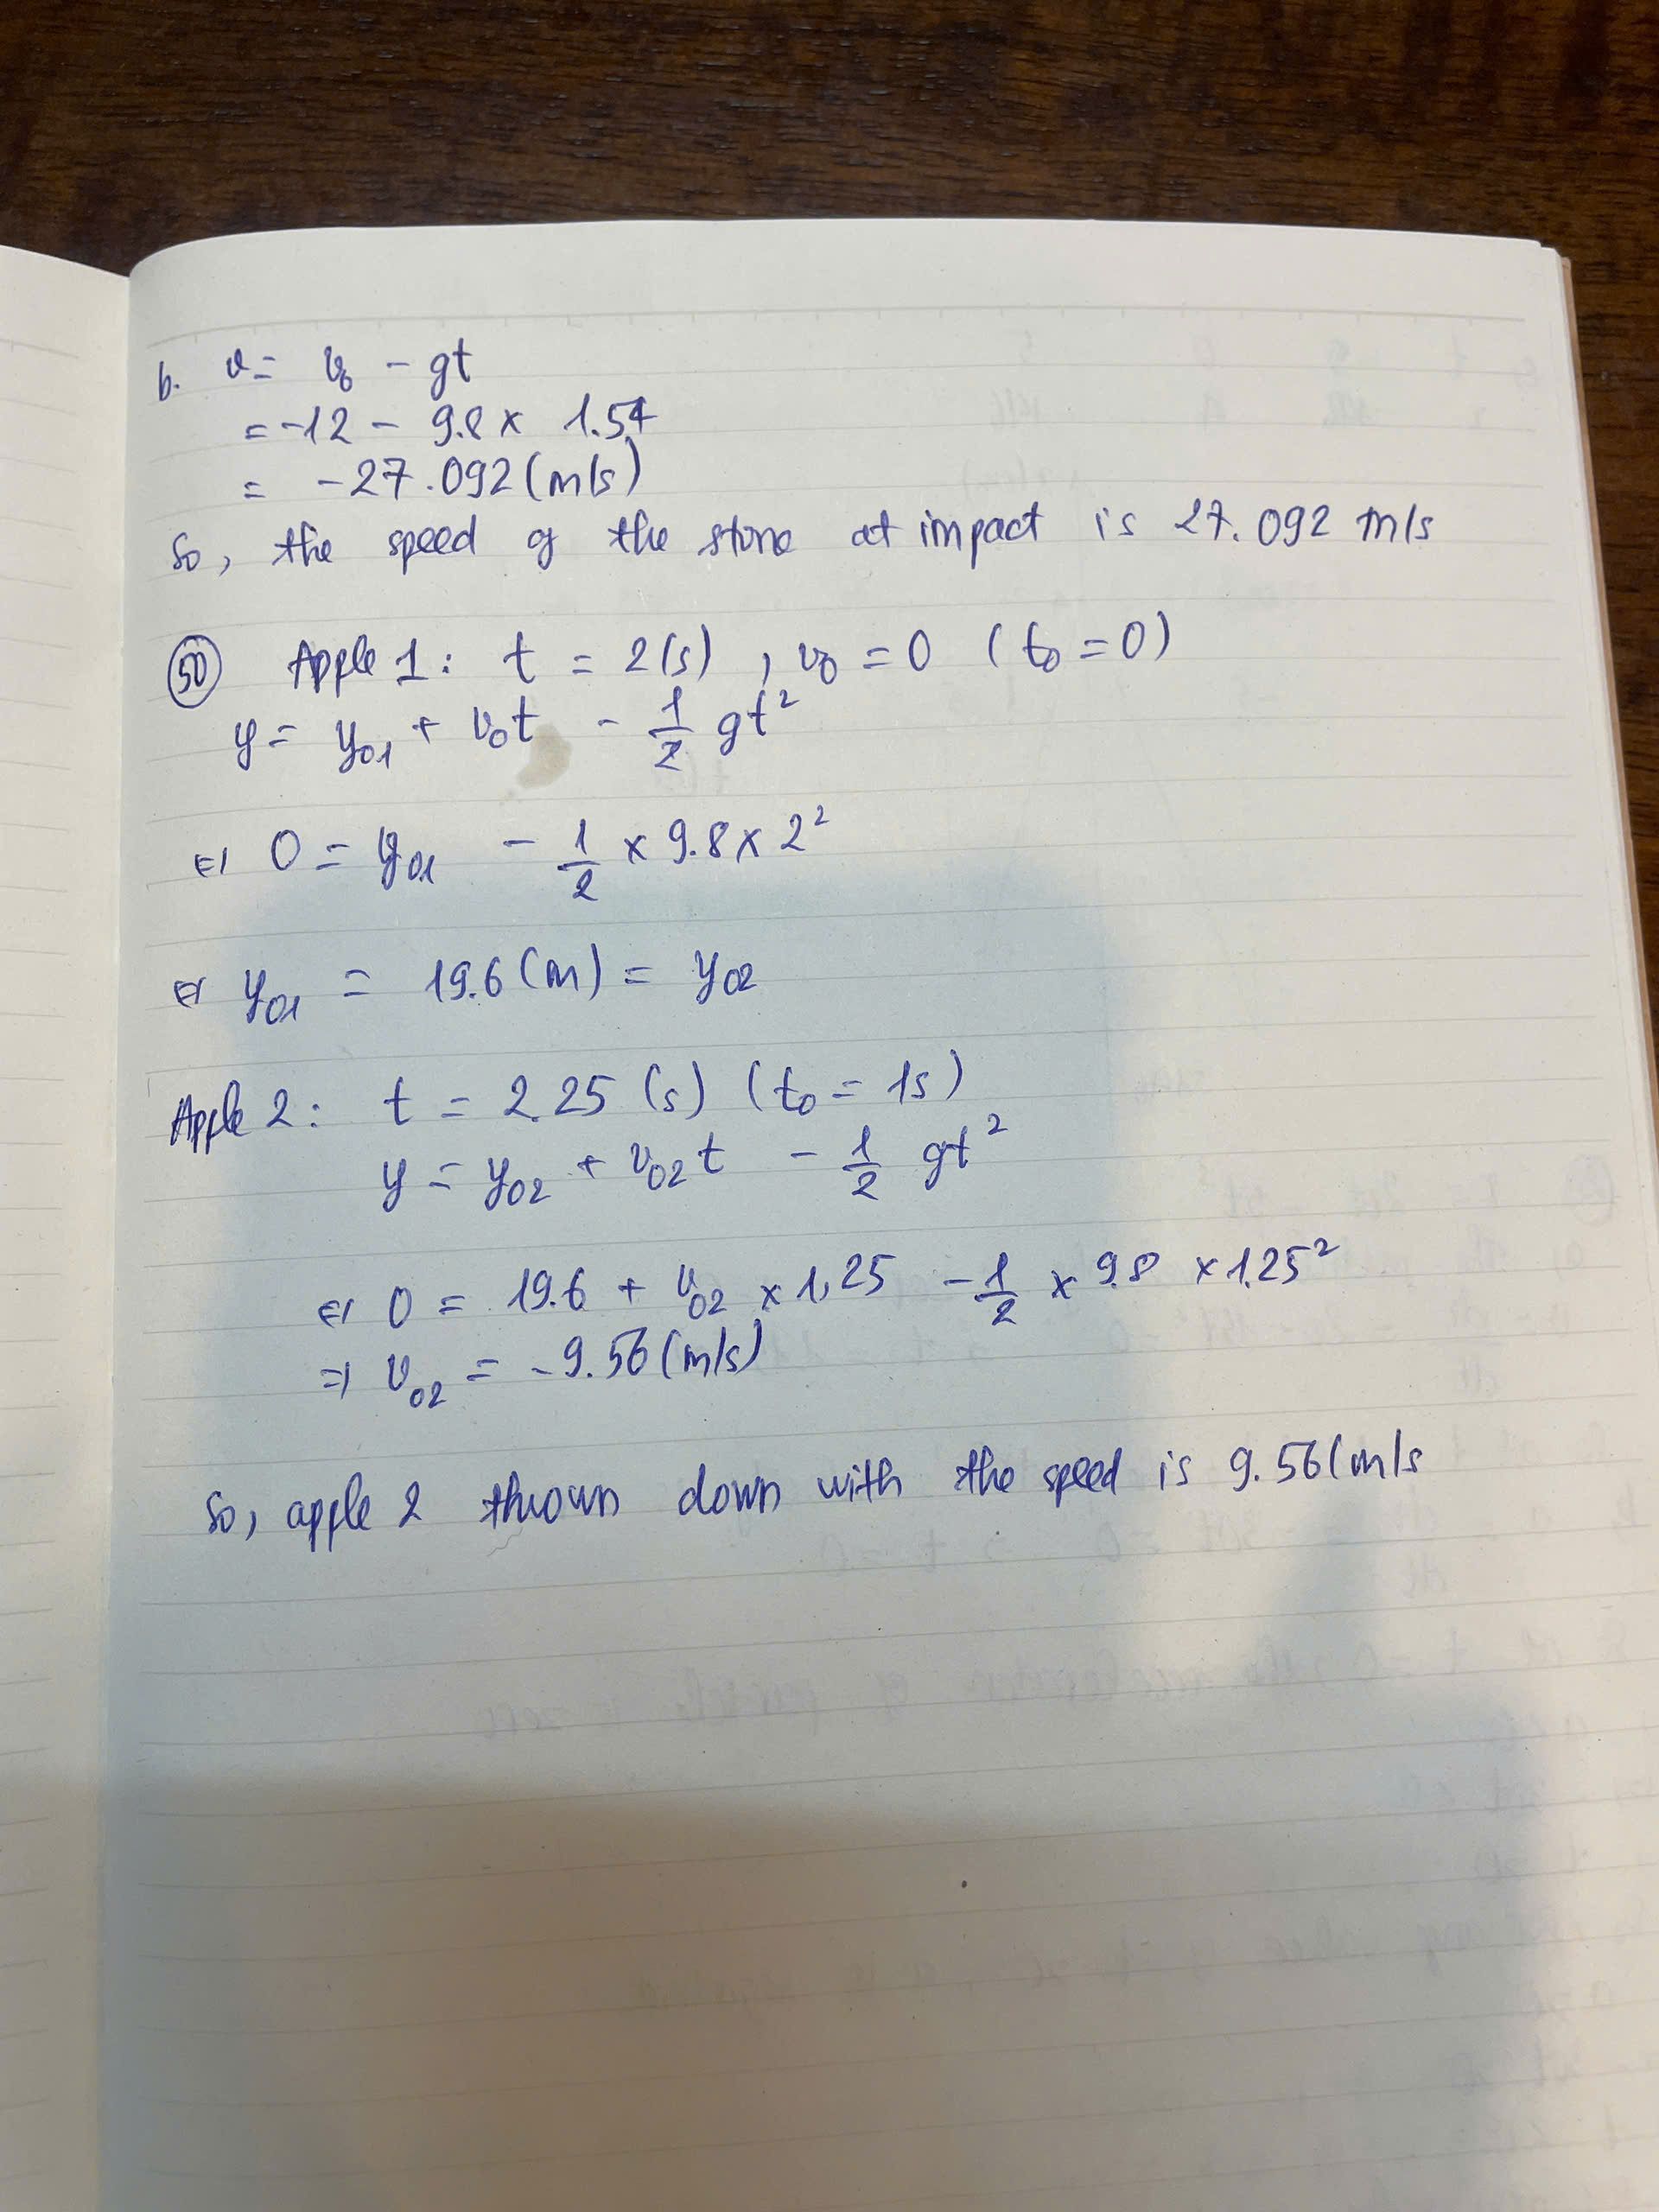 b. v = v₀ - gt
= -12 - 9.8 × 1.54
= -27.092 (m/s)
So, the speed of the stone at impact is 27.092 m/s
50 Apple 1: t = 2(s), v₀ = 0 (t₀ = 0)
y = y₀₁ + v₀t - 1/2 gt²
⇔ 0 = y₀₁ - 1/2 × 9.8 × 2²
⇔ y₀₁ = 19.6 (m) = y₀₂
Apple 2: t = 2.25 (s) (t₀ = 1s)
y = y₀₂ + v₀₂t - 1/2 gt²
⇔ 0 = 19.6 + v₀₂ × 1,25 - 1/2 × 9.8 × 1.25²
⇒ v₀₂ = -9.56 (m/s)
So, apple 2 thrown down with the speed is 9.56 (m/s